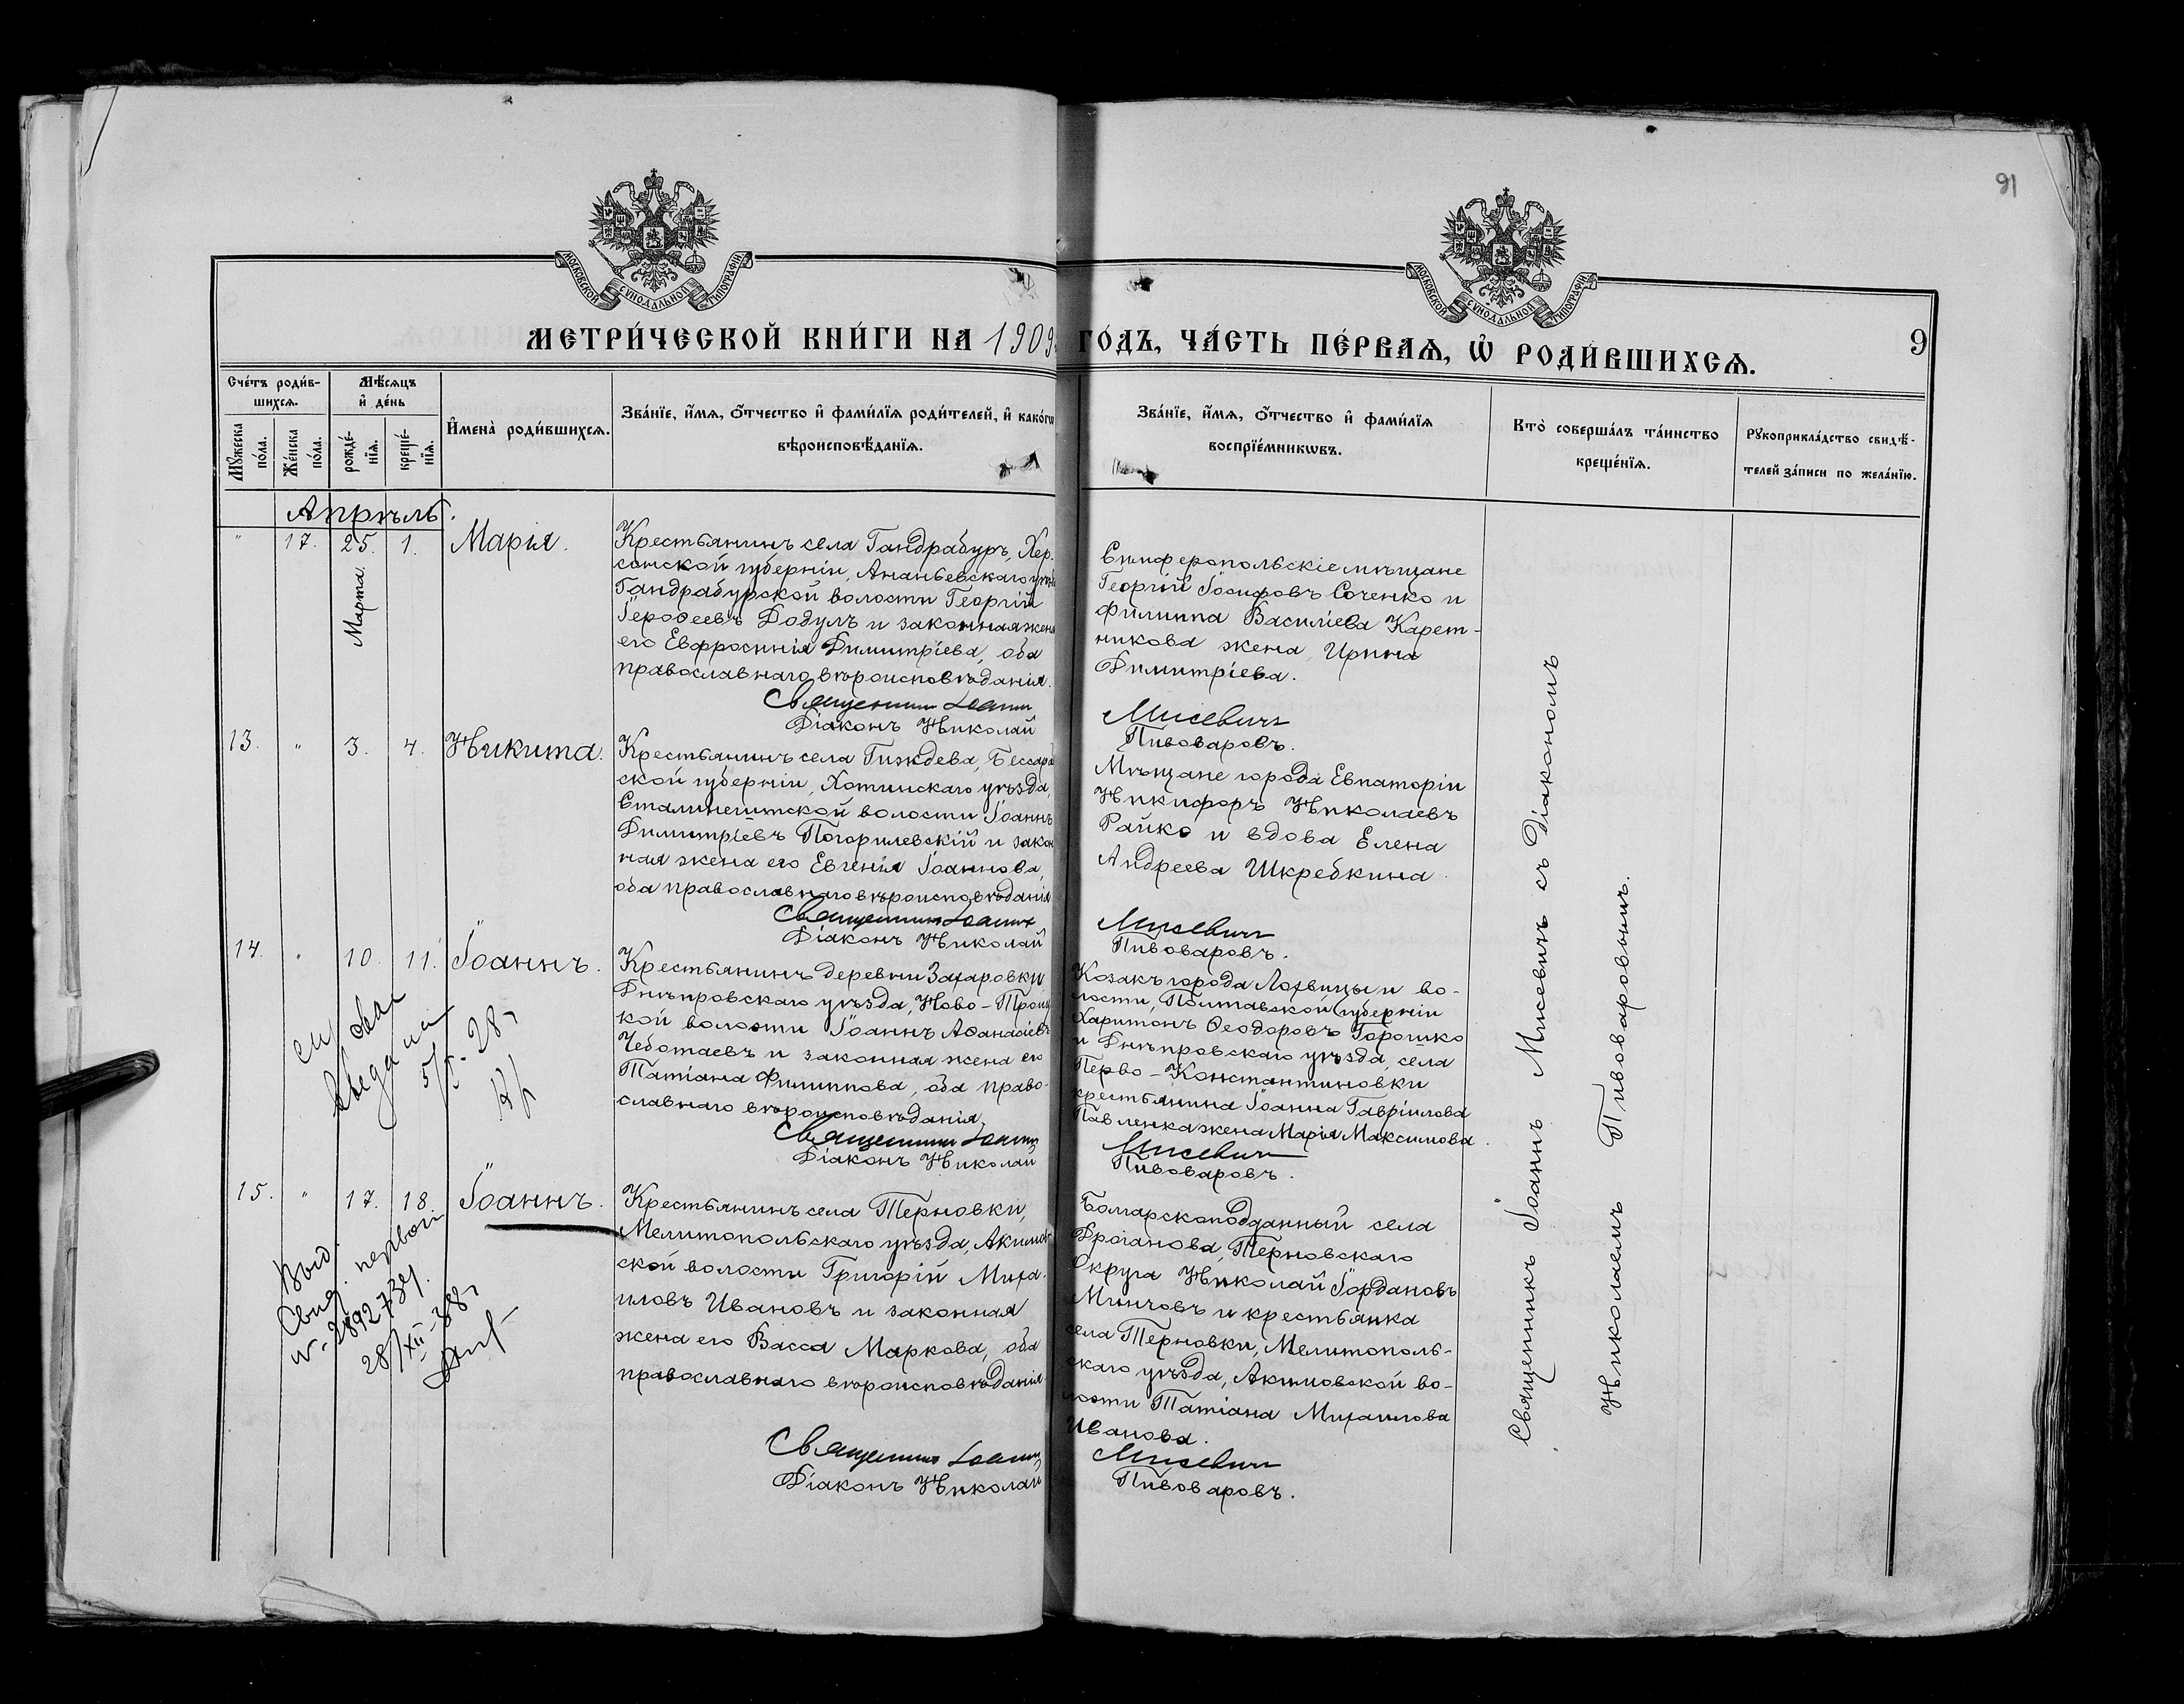 91
МОСКОВСКОЙ СУНОДАЛЬНОЙ ТИПОГРАФІИ
МОСКОВСКОЙ СУНОДАЛЬНОЙ ТИПОГРАФІИ
МЕТРИ́ЧЕСКОЙ КНИ́ГИ НА 1909 ГО́ДЪ, ЧА́СТЬ ПЕ́РВАѦ, Ѡ҆ РОДИ́ВШИХСѦ.
9
Сче́тъ роди́в-
шихсѧ.
Мѣ́сѧцъ
и҆ де́нь
Мꙋ́жеска
по́ла.
Же́нска
по́ла.
рожде́-
нїѧ.
креще́-
нїѧ.
И҆мена̀ роди́вшихсѧ.
Зва́нїе, и҆́мѧ, ѻ҆́тчество и҆ фами́лїѧ роди́телей, и҆ како́гѡ
вѣроисповѣ́данїѧ.
Зва́нїе, и҆́мѧ, ѻ҆́тчество и҆ фами́лїѧ
воспрїе́мникѡвъ.
Кто̀ соверша́лъ та́инство
креще́нїѧ.
Рꙋкоприкла́дство свидѣ́-
телей за́писи по жела́нїю.
Апрѣль.
" 17. 25. 1. Марія.
Марта.
Крестьянинъ села Гандрабуръ, Хер-
сонской губерніи, Ананьевскаго уѣзда
Гандрабурской волости Георгій
Іероѳеевъ Додулъ и законная жена
его Евфросинія Димитріева, оба
православнаго вѣроисповѣданія.
Священникъ Іоаннъ
Діаконъ Николай
Симферопольскіе мѣщане
Георгій Іосифовъ Соченко и
Филиппа Василіева Карет-
никова жена Ирина
Димитріева.
Мисевичъ
Пивоваровъ.
13. " 3. 4. Никита.
Крестьянинъ села Гиждева, Бессараб
ской губерніи, Хотинскаго уѣзда,
Сталинештской волости Іоаннъ
Димитріевъ Погорилевскій и закон
ная жена его Евгенія Іоаннова,
оба православнаго вѣроисповѣданія
Священникъ Іоаннъ
Діаконъ Николай
Мѣщане города Евпаторіи
Никифоръ Николаевъ
Райко и вдова Елена
Андреева Шкребкина.
Мисевичъ
Пивоваровъ.
14. " 10. 11. Іоаннъ.
28
Крестьянинъ деревни Захаровки
Днѣпровскаго уѣзда, Ново-Троиц
кой волости Іоаннъ Аѳанасіевъ
Чеботаевъ и законная жена его
Татіана Филиппова, оба право-
славнаго вѣроисповѣданія,
Священникъ Іоаннъ
Діаконъ Николай
Козакъ города Лохвицы и во-
лости, Полтавской губерніи
Харитонъ Ѳеодоровъ Горошко
и Днѣпровскаго уѣзда, села
Перво-Константиновки
крестьянина Іоанна Гавріилова
Павленка жена Марія Максимова.
Мисевичъ
Пивоваровъ.
15. " 17. 18. Іоаннъ.
Выд. первой
Свид.
28/XII-38
Крестьянинъ села Терновки,
Мелитопольскаго уѣзда, Акимов
ской волости Григорій Миха-
иловъ Ивановъ и законная
жена его Васса Маркова, оба
православнаго вѣроисповѣданія
Священникъ Іоаннъ
Діаконъ Николай
Болгарскоподданный села
Драганова, Терновскаго
Округа Николай Іордановъ
Минчовъ и крестьянка
села Терновки, Мелитополь-
скаго уѣзда, Акимовской во-
лости Татіана Михаилова
Иванова.
Мисевичъ
Пивоваровъ.
Священникъ Іоаннъ Мисевичъ съ Діакономъ
Николаемъ Пивоваровымъ.